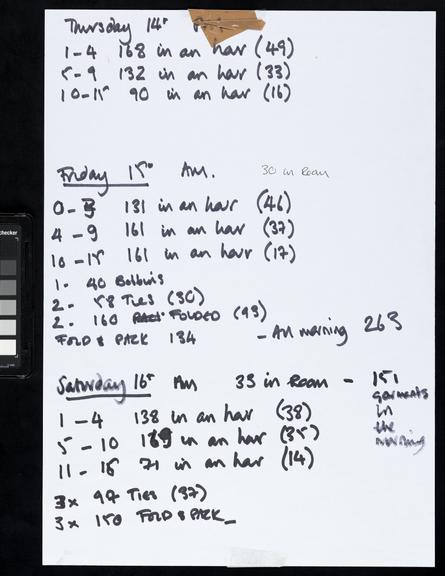 Thursday 14th
1-4 168 in an hour (49)
5-9 132 in an hour (33)
10-15 90 in an hour (16)
Friday 15th AM. 30 in Room
0-3 131 in an hour (46)
4-9 161 in an hour (37)
10-15 161 in an hour (17)
1- 40 Bobbins
2- 58 TIES (30)
2- 160 FOLDED (93)
FOLD & PACK 134 - All morning 263
Saturday 16th AM 33 in Room - 151
garments
in
the
morning
1-4 138 in an hour (38)
5-10 in an hour (35)
11-16 71 in an hour (14)
3x 97 TIES (37)
3x 150 FOLD & PACK
checker